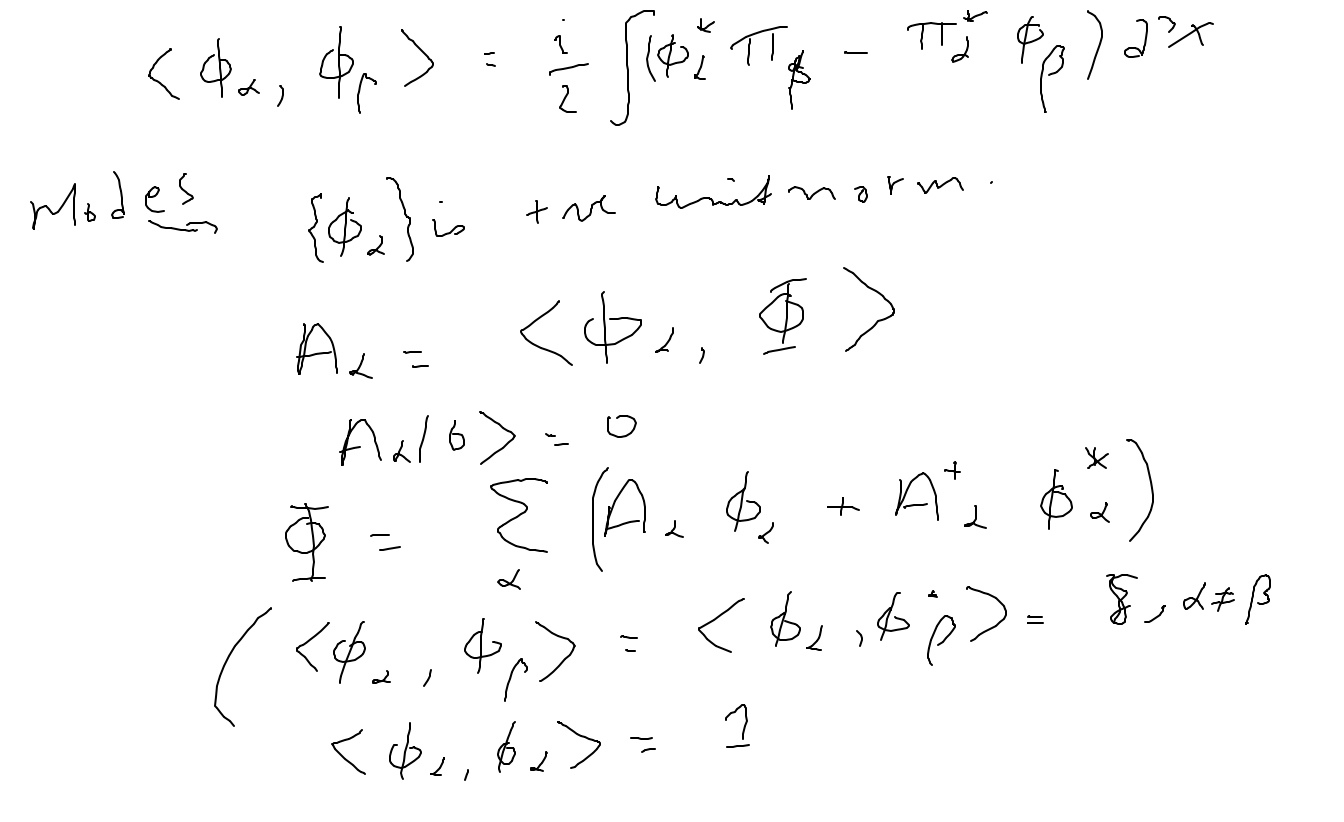 <ϕ_α, ϕ_β> = i/2 ∫(ϕ_α^* π_β − π_α^* ϕ_β) d³x
Modes {ϕ_α} is +ve unit norm.
A_α = <ϕ_α, Φ>
A_α|0> = 0
Φ = Σ_α (A_α ϕ_α + A^+_α ϕ_α^*)
(<ϕ_α, ϕ_β> = <ϕ_α, ϕ^*_β> = , α≠β
<ϕ_α, ϕ_α> = 1